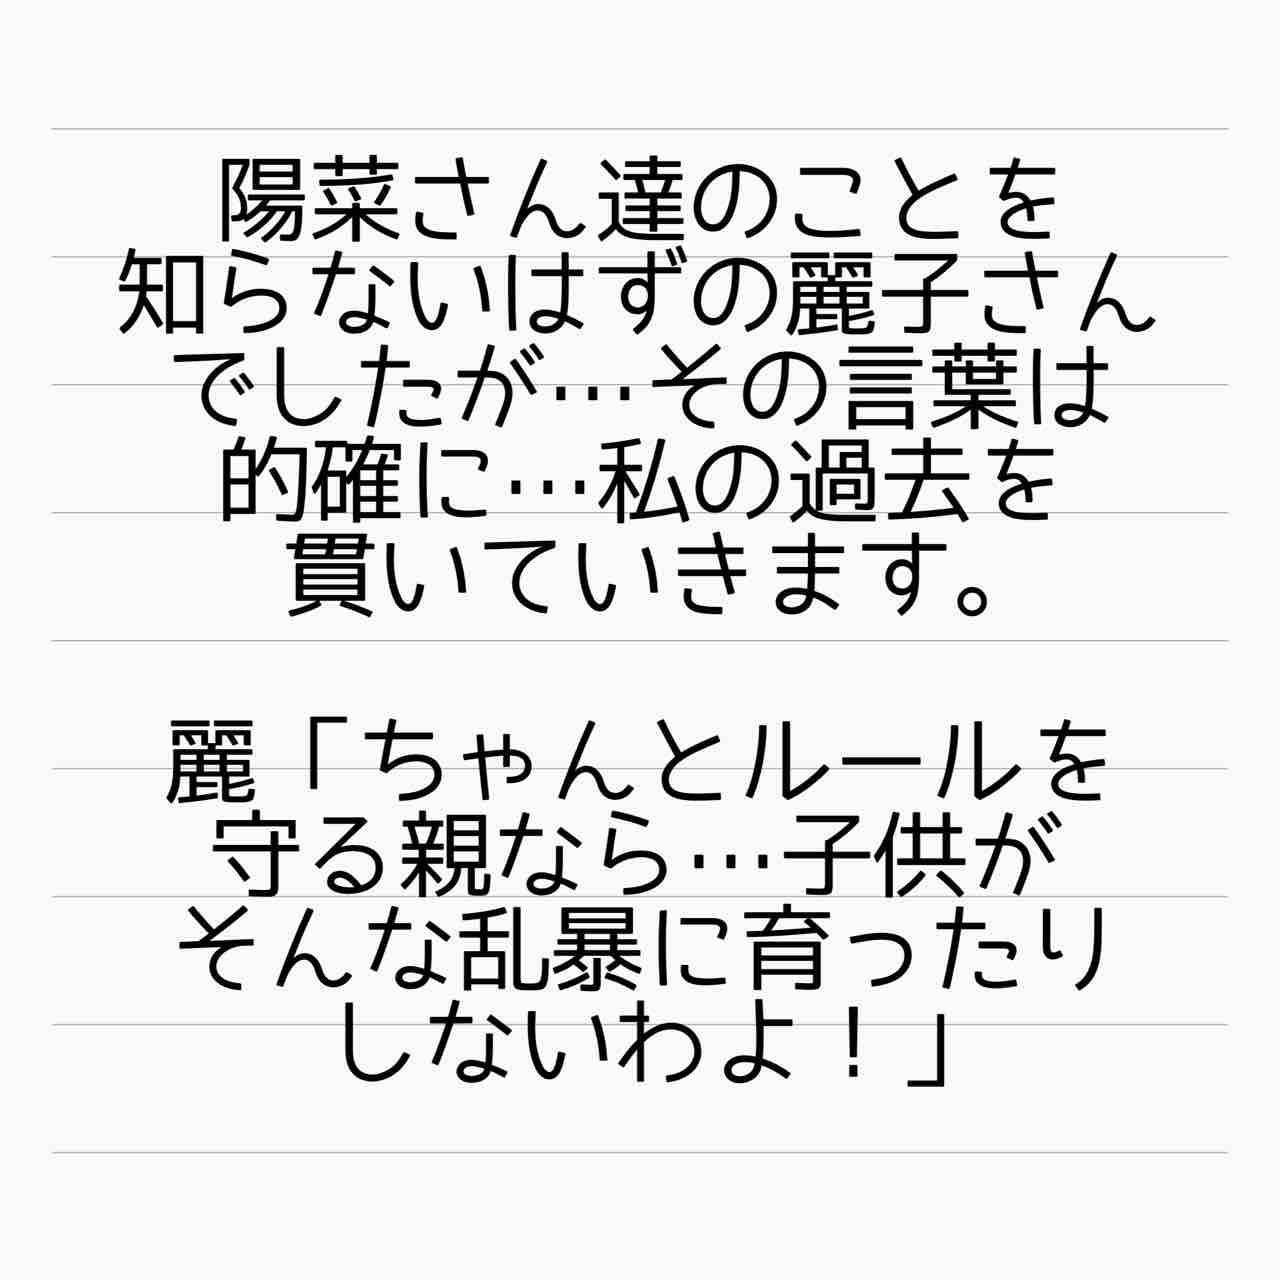 陽菜さん達のことを
知らないはずの麗子さん
でしたが…その言葉は
的確に…私の過去を
貫いていきます。
麗「ちゃんとルールを
守る親なら…子供が
そんな乱暴に育ったり
しないわよ！」